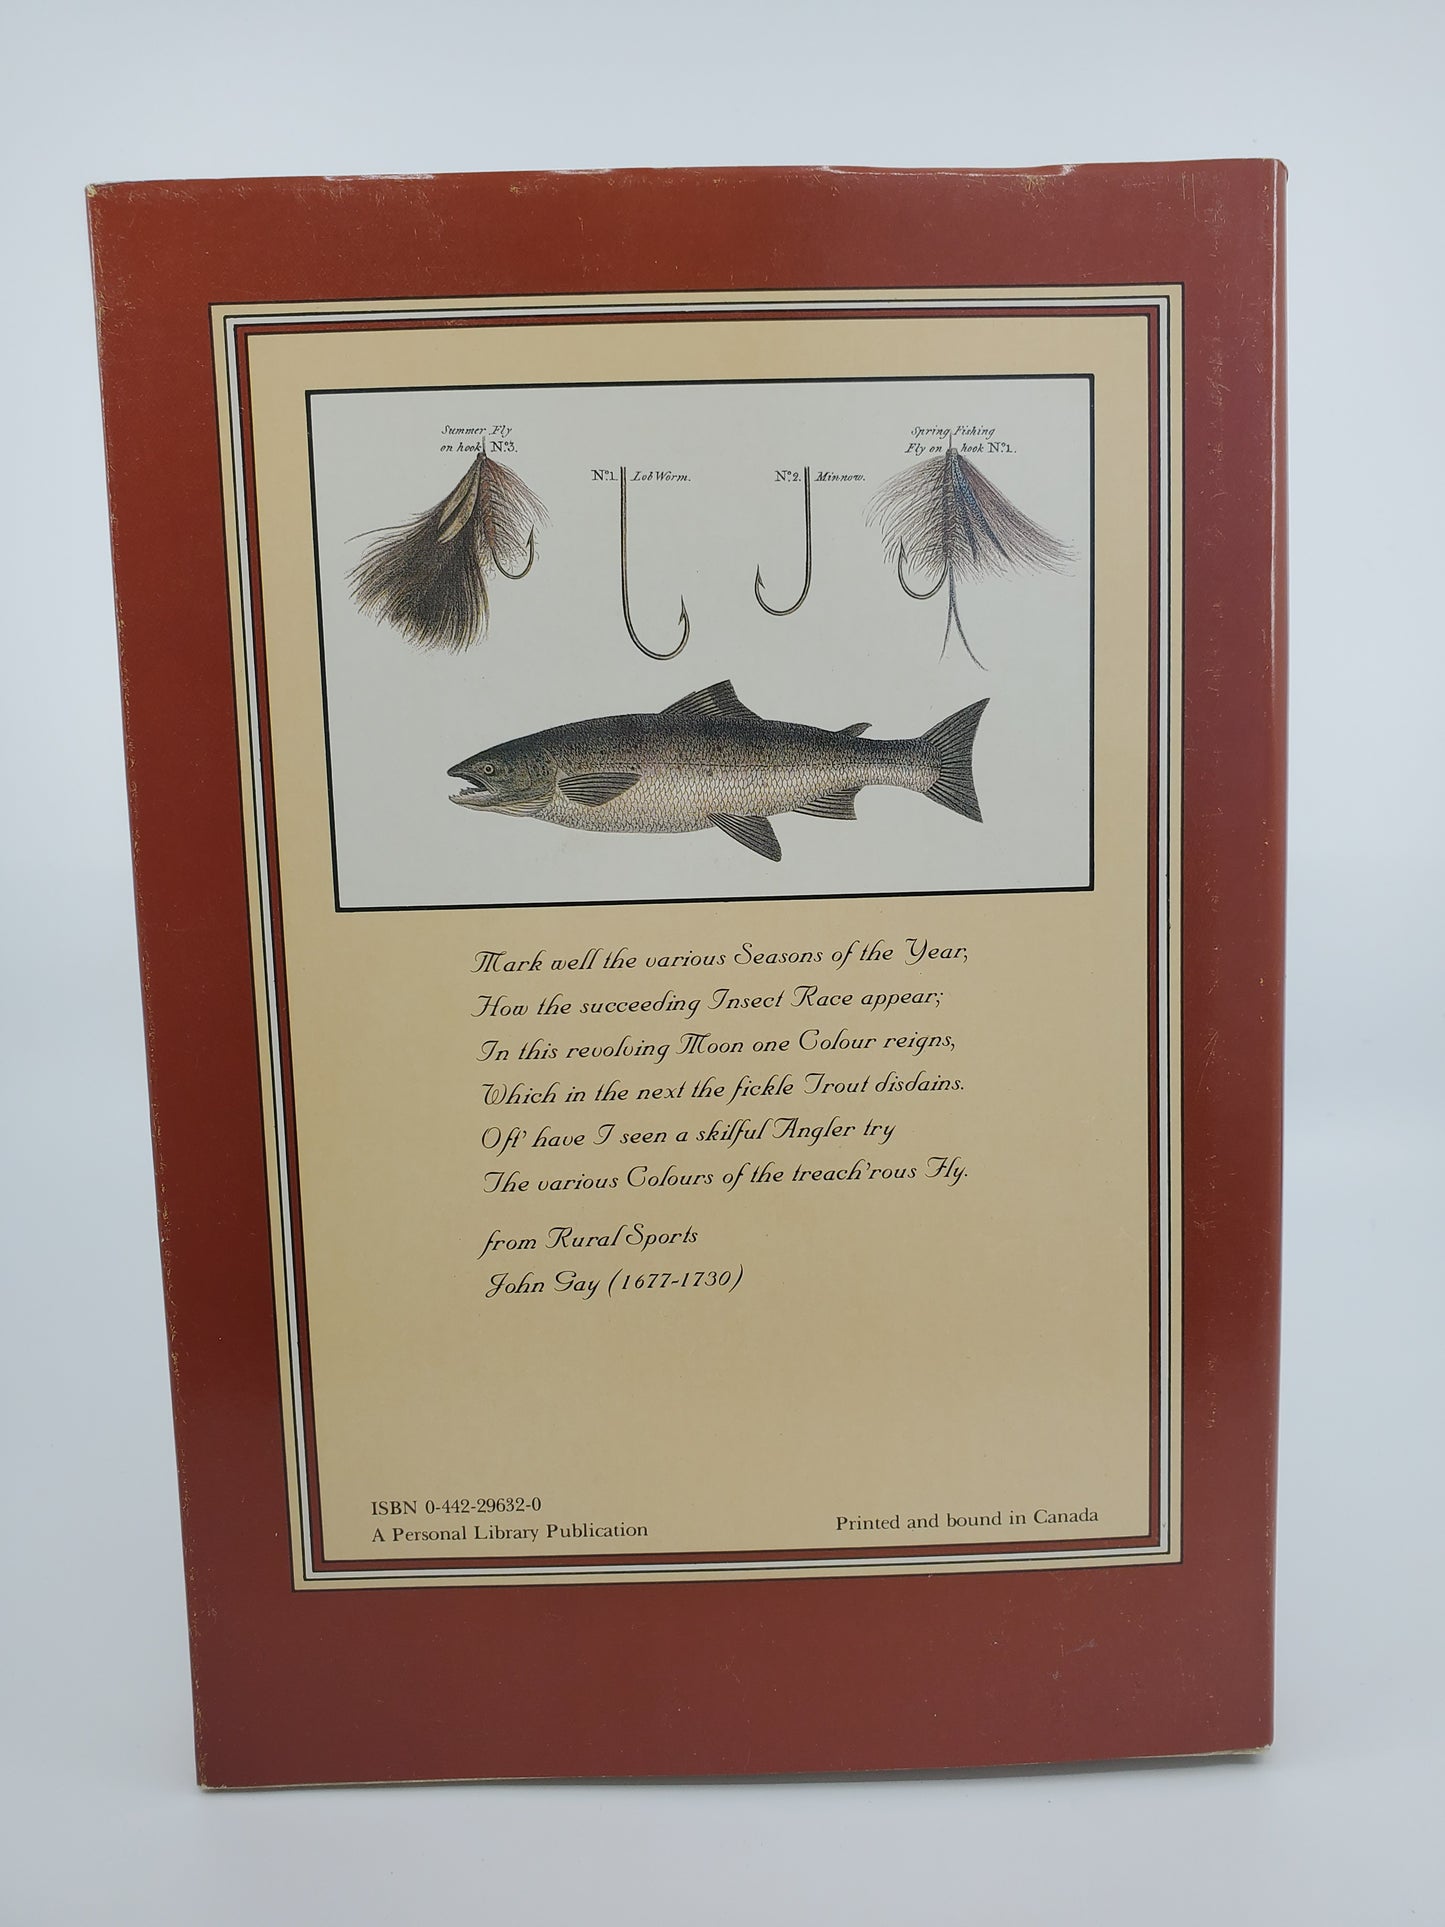 Summer Fly
on hook Nº3.
Spring Fishing
Fly on hook Nº1.
Nº1. Lob Worm.
Nº2. Minnow.
Mark well the various Seasons of the Year,
How the succeeding Insect Race appear;
In this revolving Moon one Colour reigns,
Which in the next the fickle Trout disdains.
Oft' have I seen a skilful Angler try
The various Colours of the treach'rous Fly.
from Rural Sports
John Gay (1677-1730)
ISBN 0-442-29632-0
A Personal Library Publication
Printed and bound in Canada